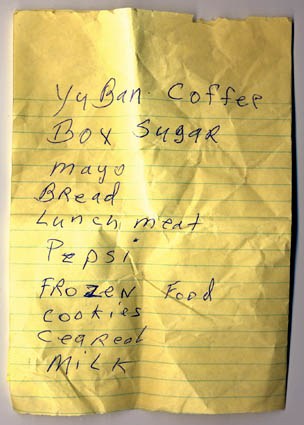 YuBan Coffee
Box Sugar
mayo
BRead
Lunch meat
Pepsi
FROZEN Food
cookies
Ceareal
MiLK